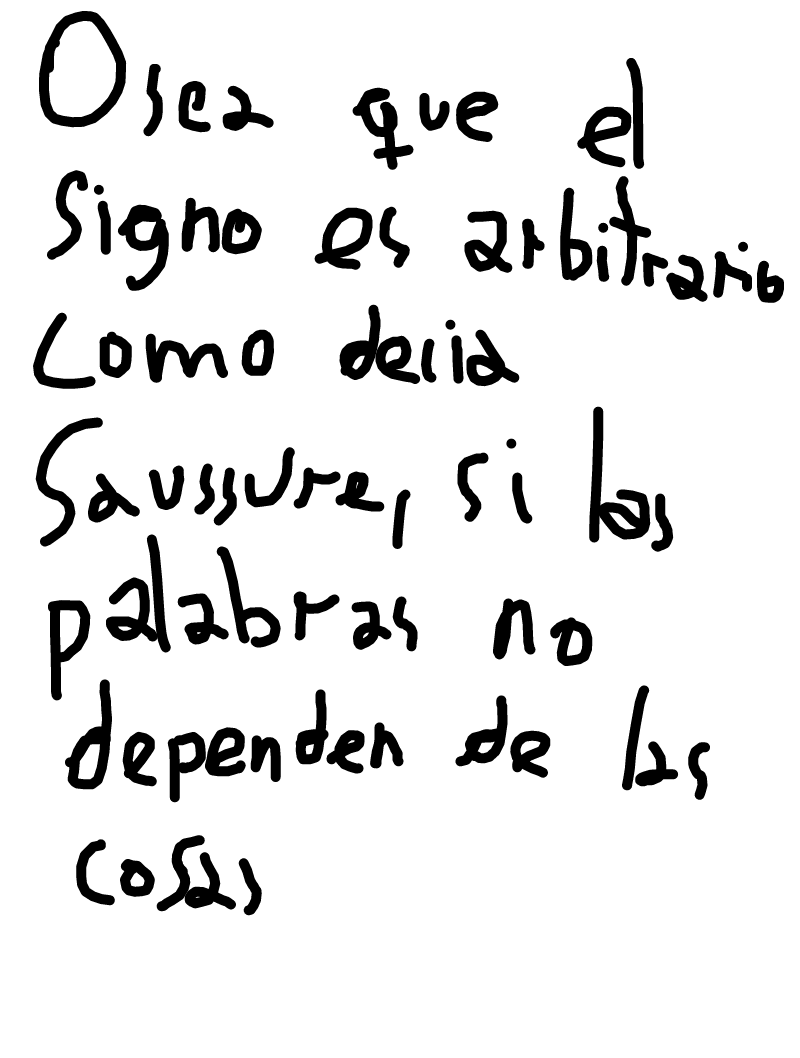 Osea que el
signo es arbitrario
como decia
Saussure, si las
palabras no
dependen de las
cosas